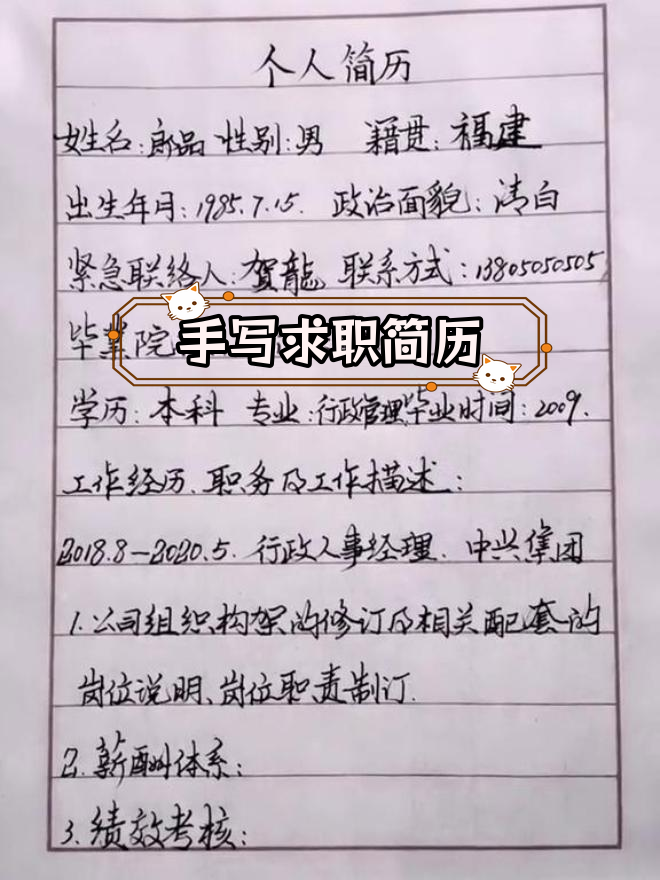 个人简历
姓名:郎品 性别:男 籍贯:福建
出生年月:1985.7.15. 政治面貌:清白
紧急联络人:贺龍 联系方式:13805050505
毕业院
手写求职简历
学历:本科 专业:行政管理毕业时间:2009.
工作经历、职务及工作描述:
2018.8—2020.5. 行政人事经理. 中兴集团
1.公司组织构架的修订及相关配套的
岗位说明、岗位职责制订.
2.薪酬体系:
3.绩效考核: